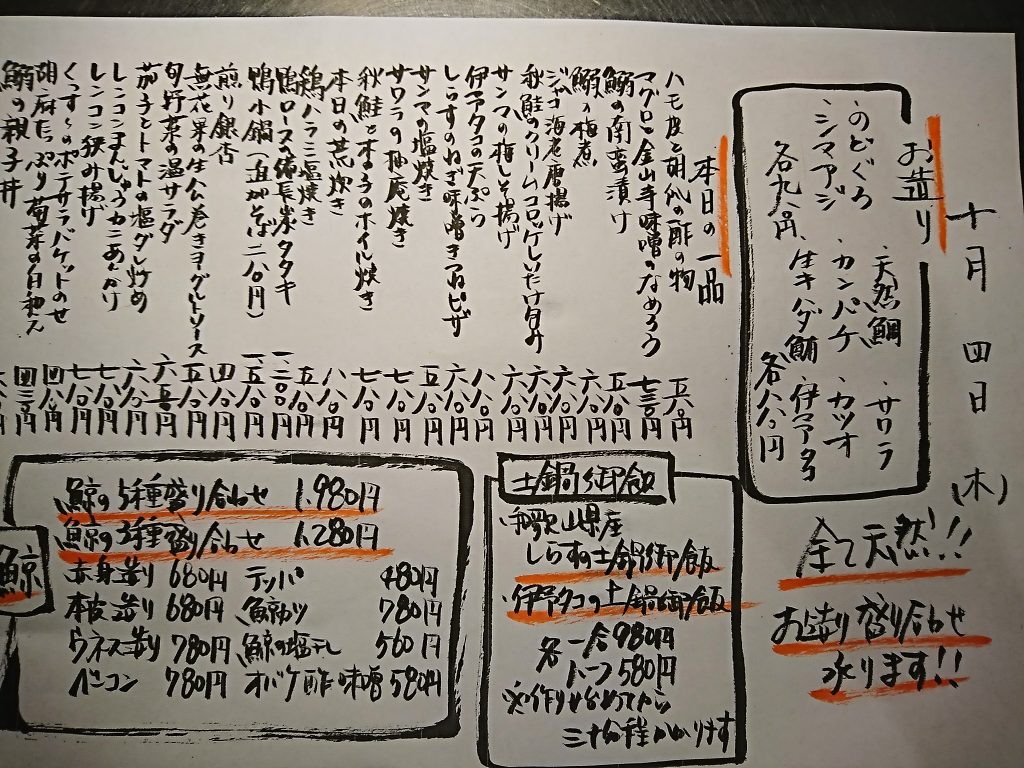 十月 四日 (木)
全て天然!!
お造り盛り合わせ
承ります!!
お造り
・のどぐろ ・天然鯛 ・サワラ
・シマアジ ・カンパチ ・カツオ
各九八〇円 ・生キハダ鮪 ・伊アアタコ
各八八〇円
本日の一品
ハモ皮と胡瓜の酢の物 五八〇円
マグロの金山寺味噌のなめろう 七三〇円
鰯の南蛮漬け 五八〇円
鰯の梅煮 六八〇円
ジャコ海老唐揚げ 六八〇円
秋鮭のクリームコロッケしいたけ包み 六八〇円
サンマの梅しそ揚げ 六八〇円
伊アアタコの天ぷら 八八〇円
しらすのねぎ味噌きつねピザ 六八〇円
サンマの塩焼き 五八〇円
サワラの柚庵焼き 七八〇円
秋鮭ときのこのホイル焼き 七八〇円
本日の荒炊き 八八〇円
鶏ハラミ塩焼き 五八〇円
鴨ロースの備長炭タタキ 一、二〇〇円
鴨小鍋(追加そば二八〇円) 一、五八〇円
煎り銀杏 四八〇円
無花果の生ハム巻きヨーグルトソース 五八〇円
旬野菜の温サラダ 六八〇円
茄子とトマトの塩ダレ炒め 六八〇円
レンコンまんじゅうカニあんかけ 七八〇円
レンコン挟み揚げ 七八〇円
くっすーのポテサラバケットのせ 四八〇円
胡麻たっぷり菊菜の白和え 四三〇円
鰯の親子丼
土鍋御飯
・和歌山県産
しらすの土鍋御飯
・伊勢タコの土鍋御飯
各 一合980円
ハーフ580円
※作り始めてから
三十分程かかります
鯨
鯨の5種盛り合わせ 1,980円
鯨の3種盛り合わせ 1,280円
赤身造り 680円 テッパ 480円
本皮造り 680円 鯨カツ 780円
ウネス造り 780円 鯨の塩干し 560円
ベーコン 780円 オバケ酢味噌 580円